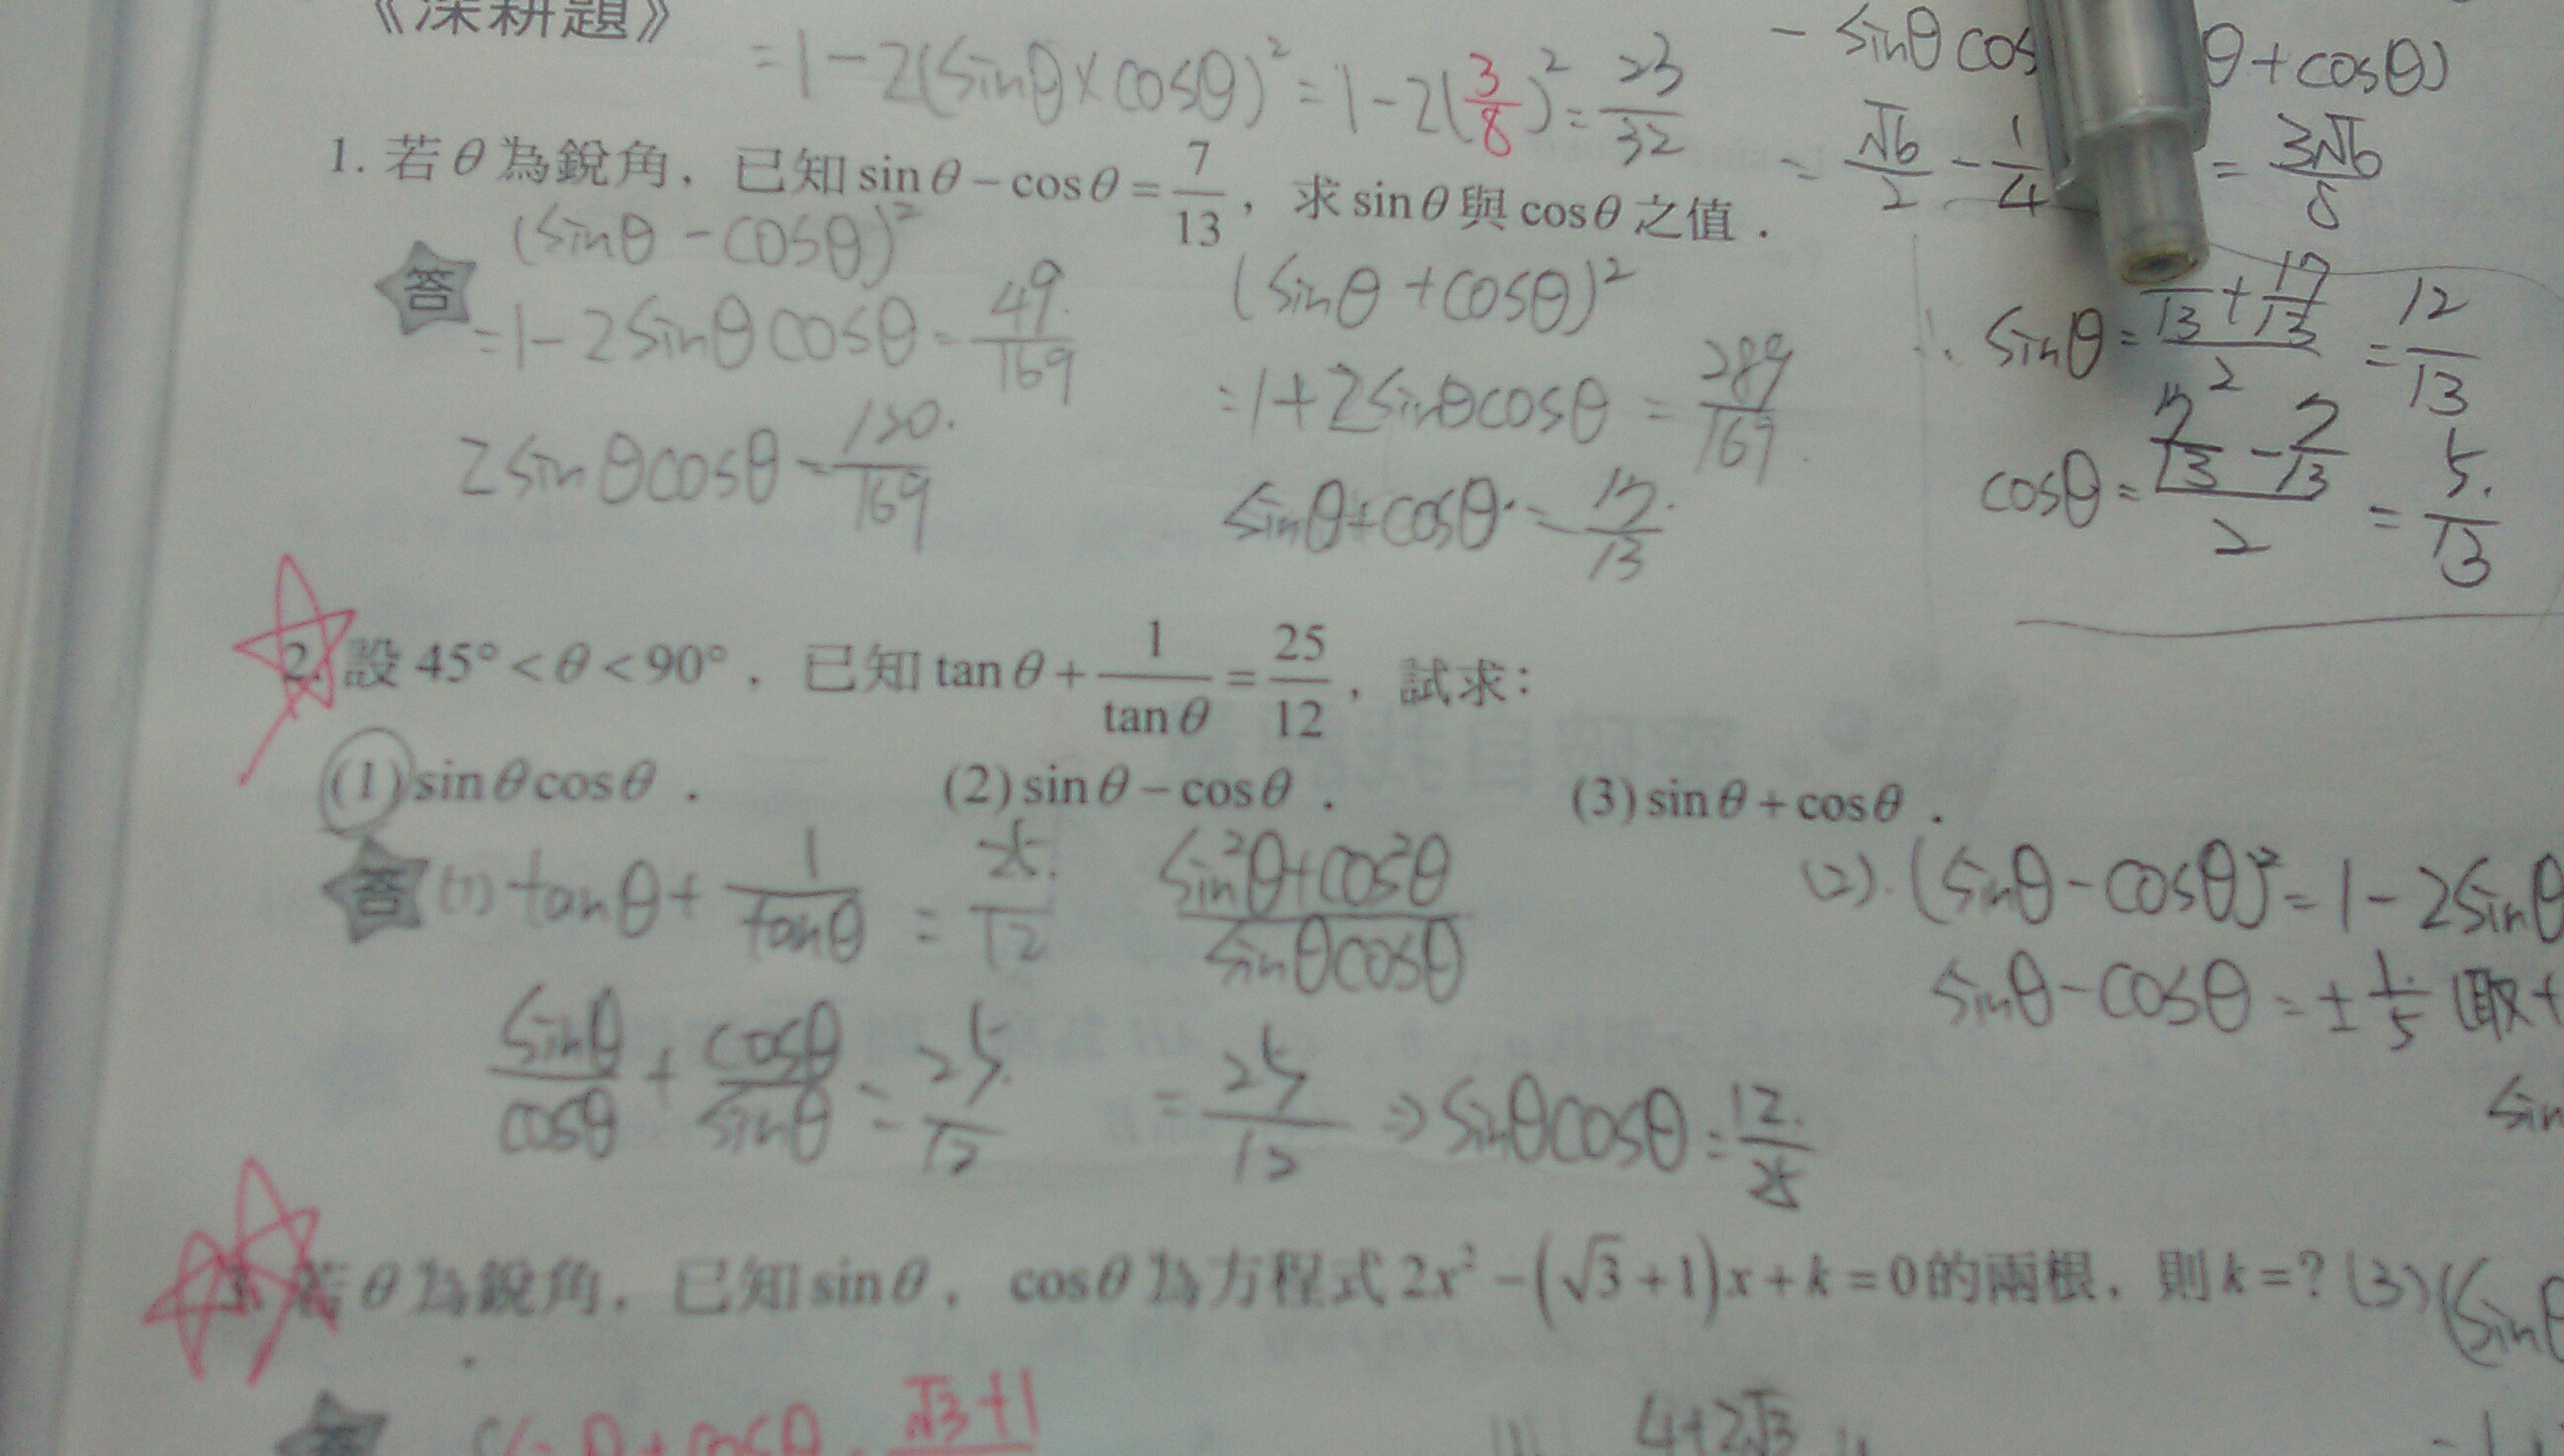 《深耕題》
=1-2(sinθ×cosθ)²=1-2(3/8)²=23/32
-sinθcos θ+cosθ)
=√6/2-1/4 =3√6/8
1. 若θ為銳角，已知sinθ-cosθ=7/13，求sinθ與cosθ之值．
答
(sinθ-cosθ)²
=1-2sinθcosθ=49/169
2sinθcosθ=120/169
(sinθ+cosθ)²
=1+2sinθcosθ=289/169
sinθ+cosθ=17/13
∴ sinθ= 13+17/13 / 2 =12/13
cosθ= 17/13-7/13 / 2 =5/13
2. 設45°<θ<90°．已知tanθ+1/tanθ=25/12，試求：
(1)sinθcosθ． (2)sinθ-cosθ． (3)sinθ+cosθ．
答 (1) tanθ+1/tanθ=25/12
sinθ/cosθ+cosθ/sinθ=25/12
sin²θ+cos²θ/sinθcosθ
=25/12⇒sinθcosθ=12/25
(2). (sinθ-cosθ)²=1-2sinθ
sinθ-cosθ=±1/5 (取+
sin
3. 若θ為銳角．已知sinθ．cosθ為方程式2x²-(√3+1)x+k=0的兩根，則k=?
(3)(sinθ
答
sinθ+cosθ=√3+1
4+2√3